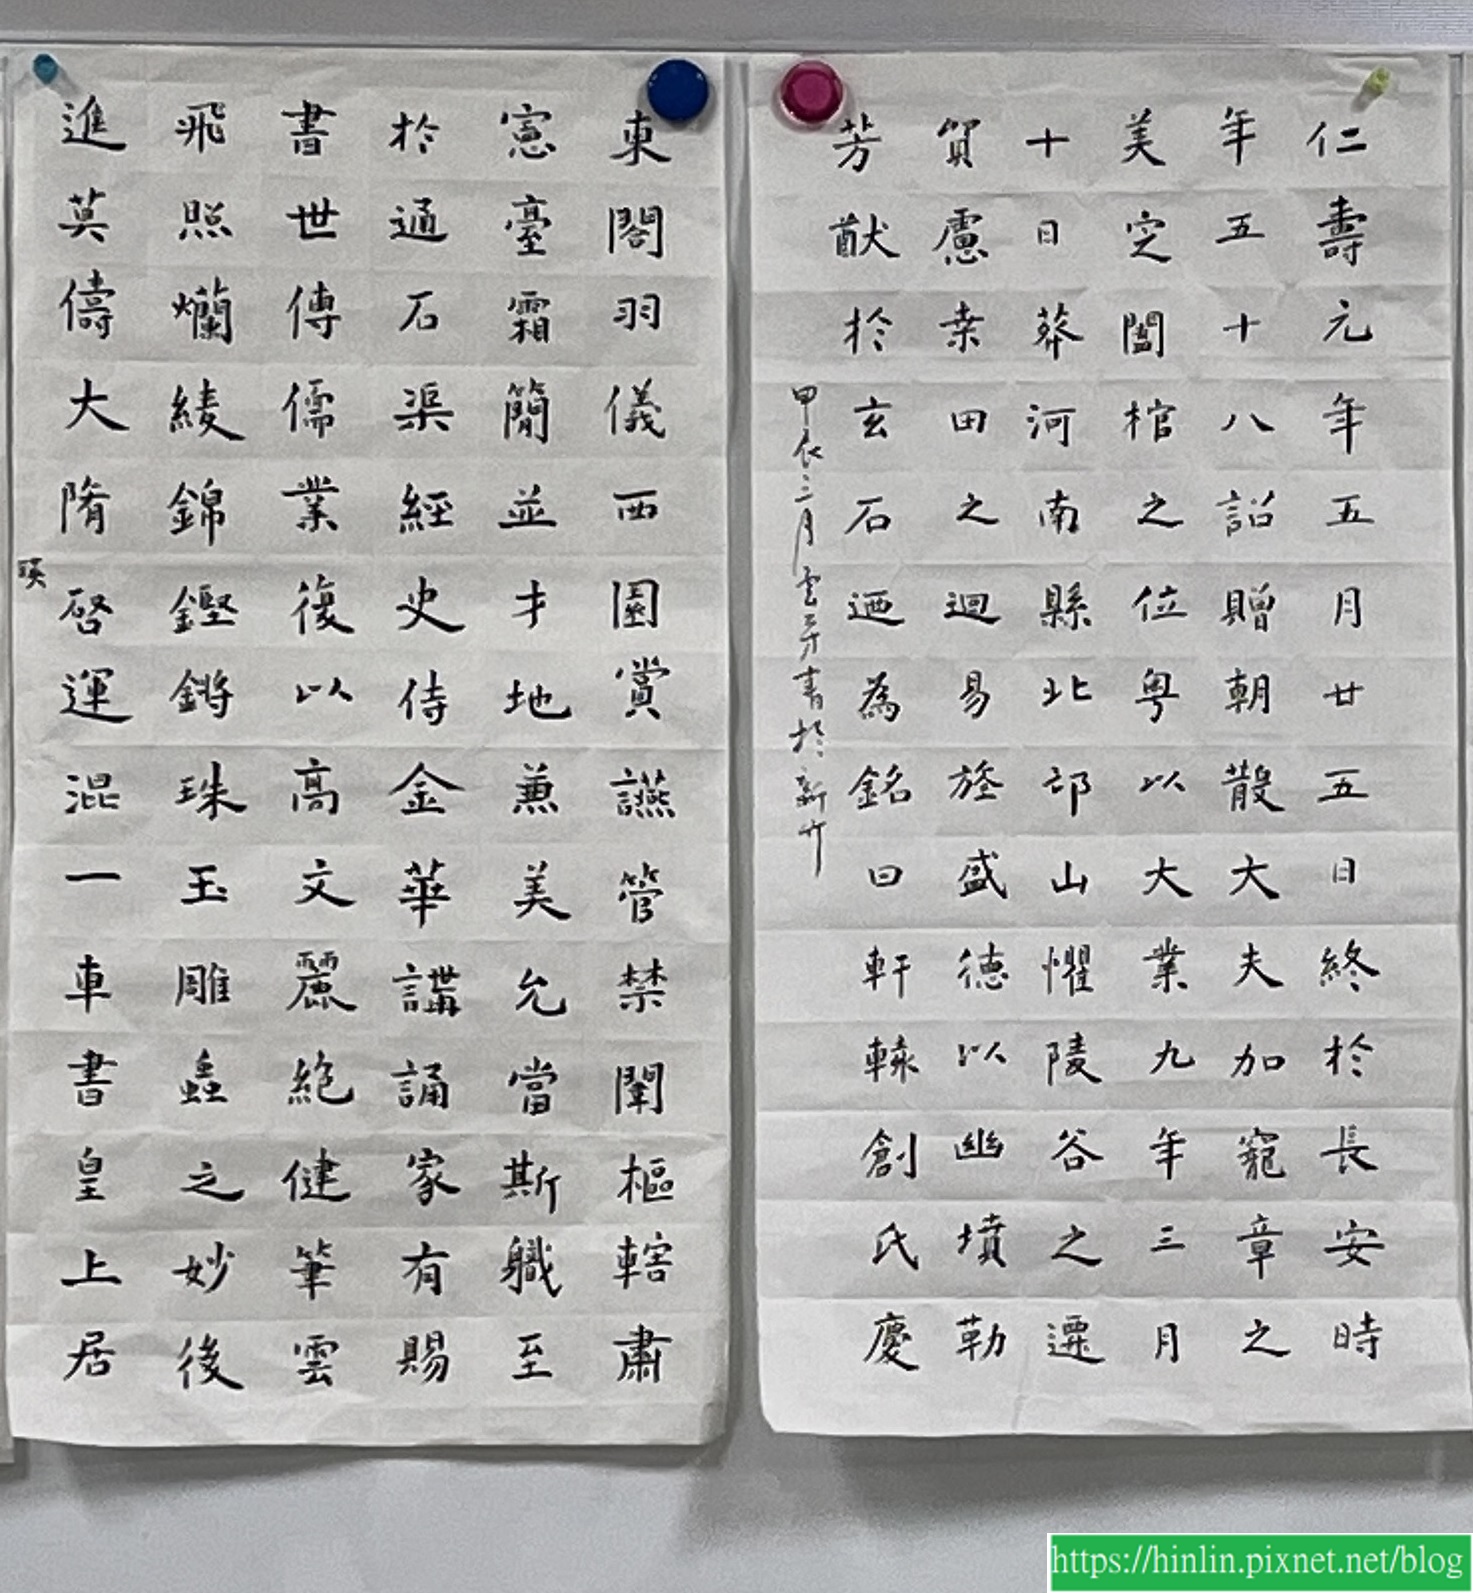 仁壽元年五月廿五日終於長安時
年五十八詔贈朝散大夫加寵章之
美空闔棺之位粵以大業九年三月
十日葬河南縣北邙山懼陵谷之遷
貿慮桒田之迴易旌盛德以幽墳勒
芳猷於玄石迺為銘曰軒轅創氏慶
甲辰三月雲芳書於新竹
東閣羽儀西園賞讌管禁闈樞轄肅
憲臺霜簡並才地兼美允當斯職至
於通石渠經史侍金華講誦家有賜
書世傳儒業復以高文麗絕健筆雲
飛照爛綾錦鏗鏘珠玉雕蟲之妙後
進莫儔大隋啓運混一車書皇上居
瑛
https://hinlin.pixnet.net/blog